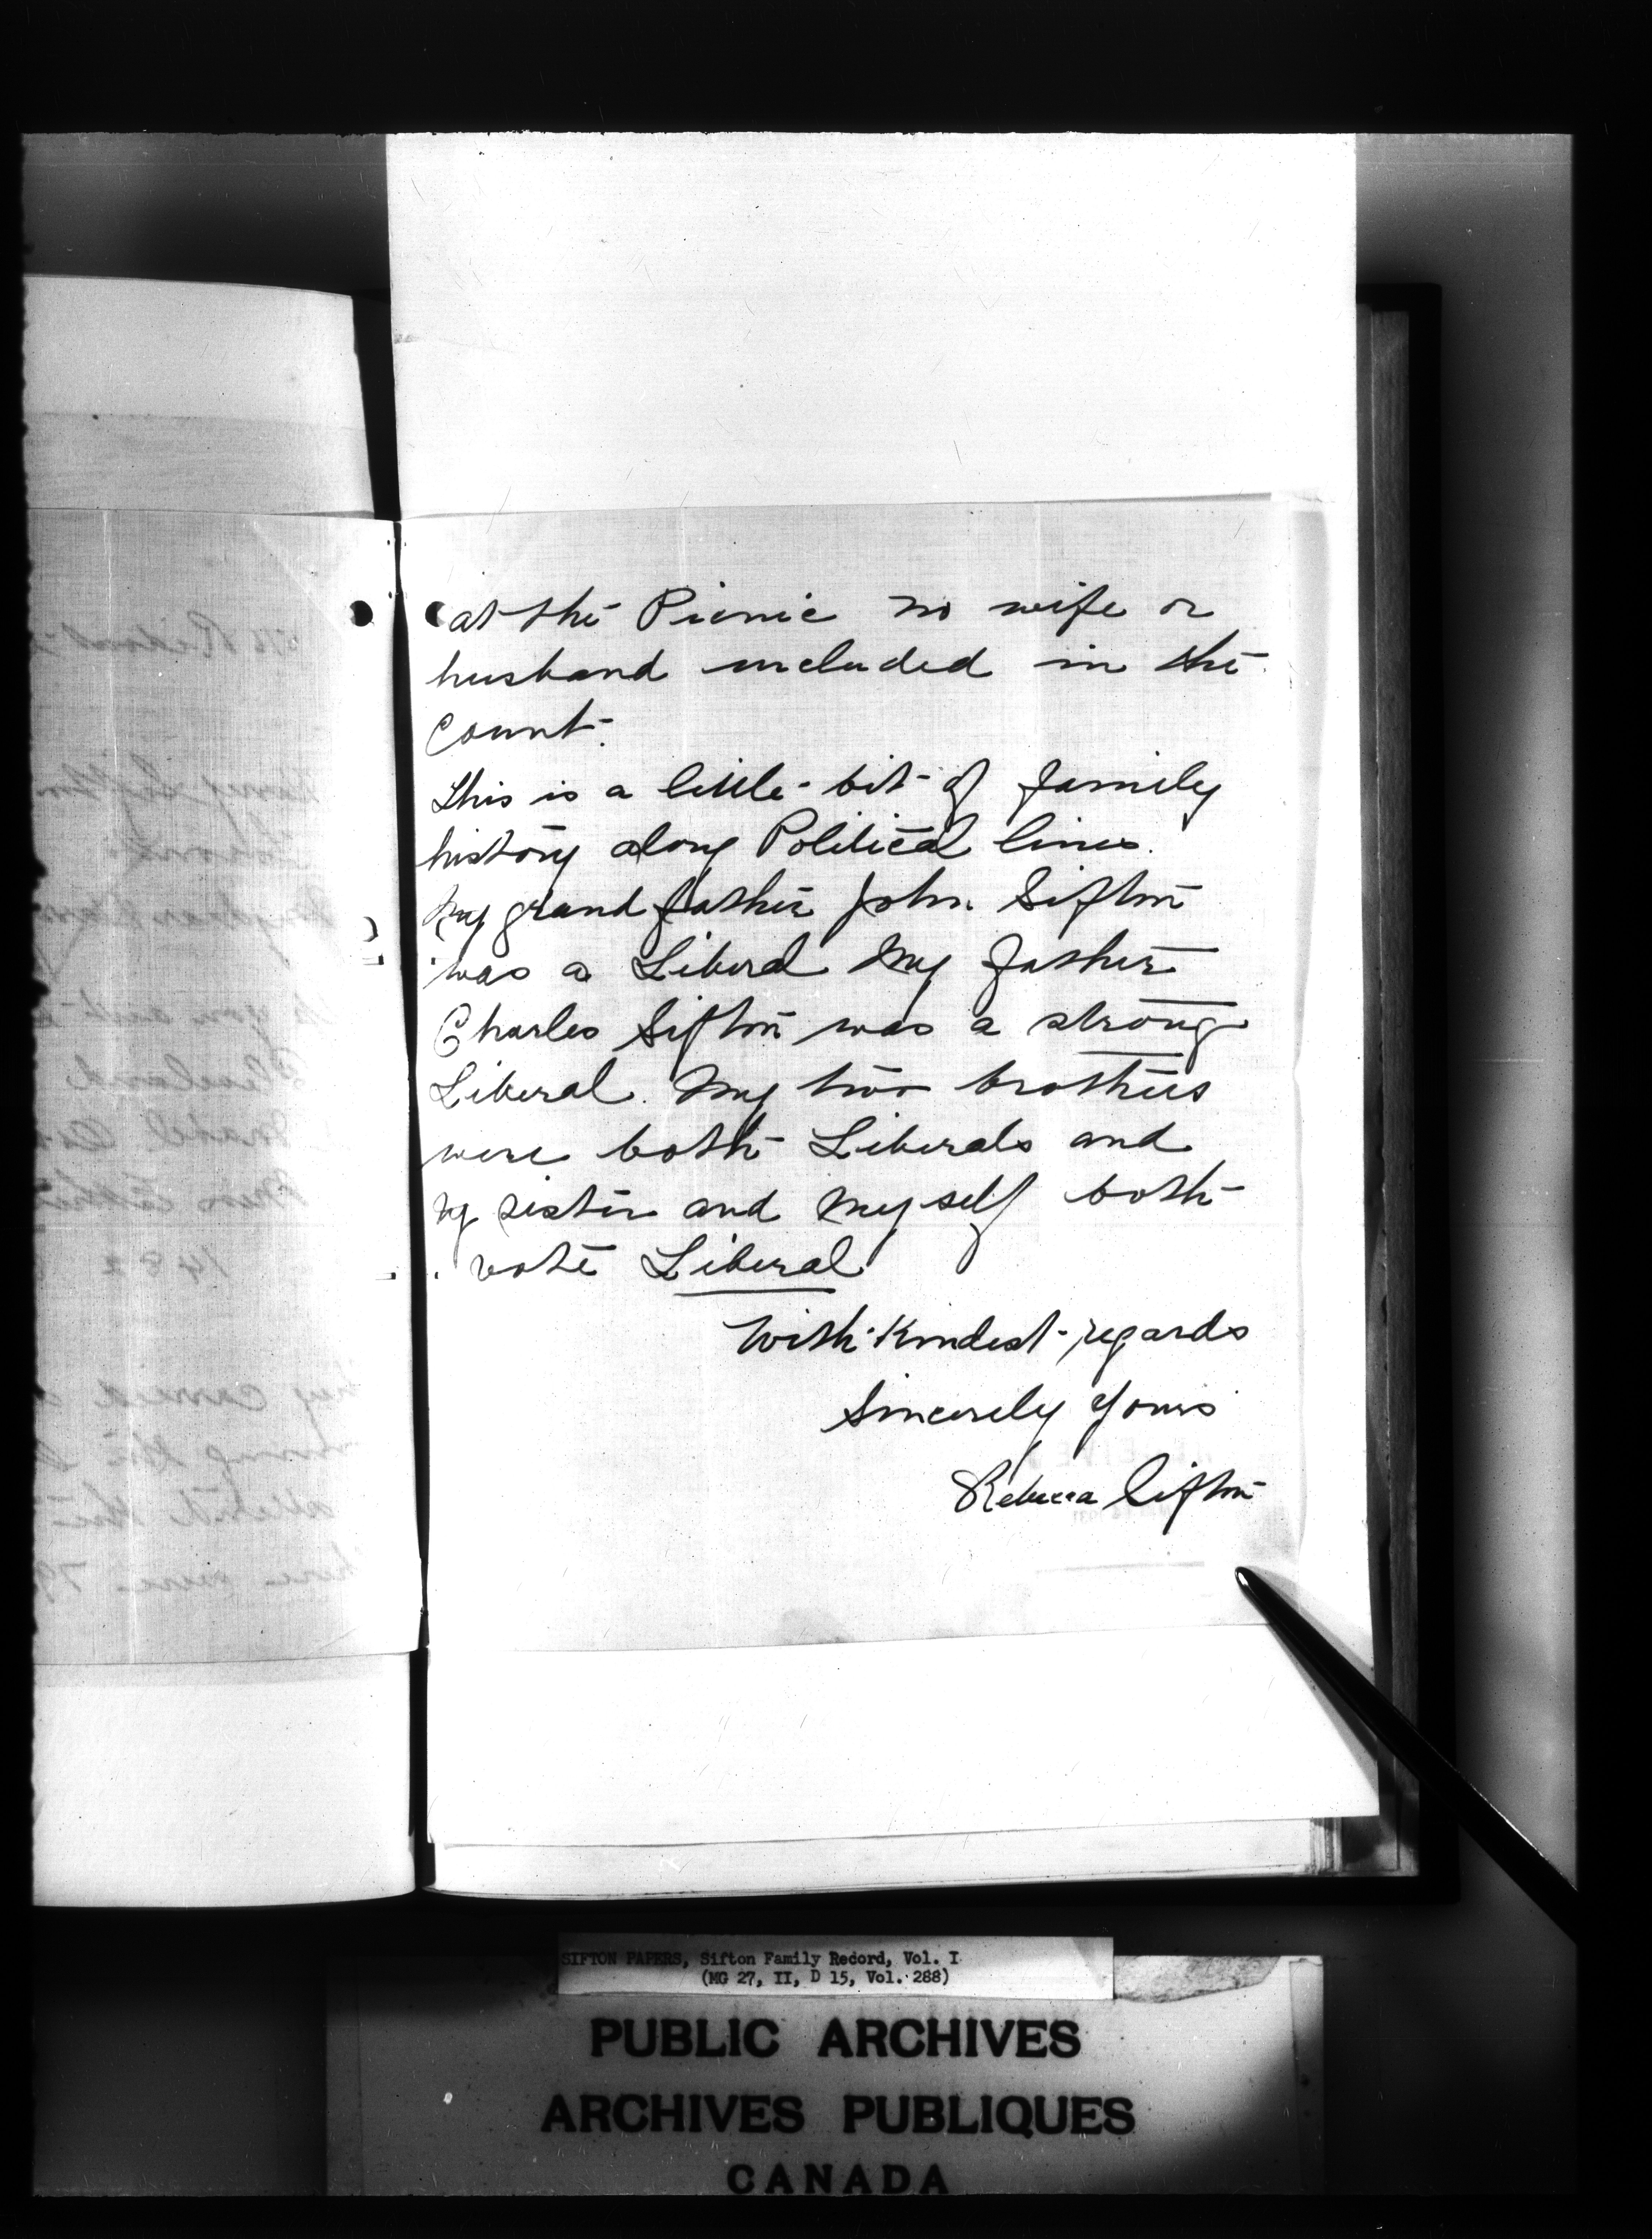 at the Picnic no wife or
husband included in the
count.
This is a little bit of family
history along Political lines.
My grand father John Sifton
was a Liberal My father
Charles Sifton was a strong
Liberal. My two brothers
were both Liberals and
my sister and myself both
vote Liberal
With Kindest regards
Sincerely Yours
Rebecca Sifton
SIFTON PAPERS, Sifton Family Record, Vol. I
(MG 27, II, D 15, Vol. 288)
PUBLIC ARCHIVES
ARCHIVES PUBLIQUES
CANADA